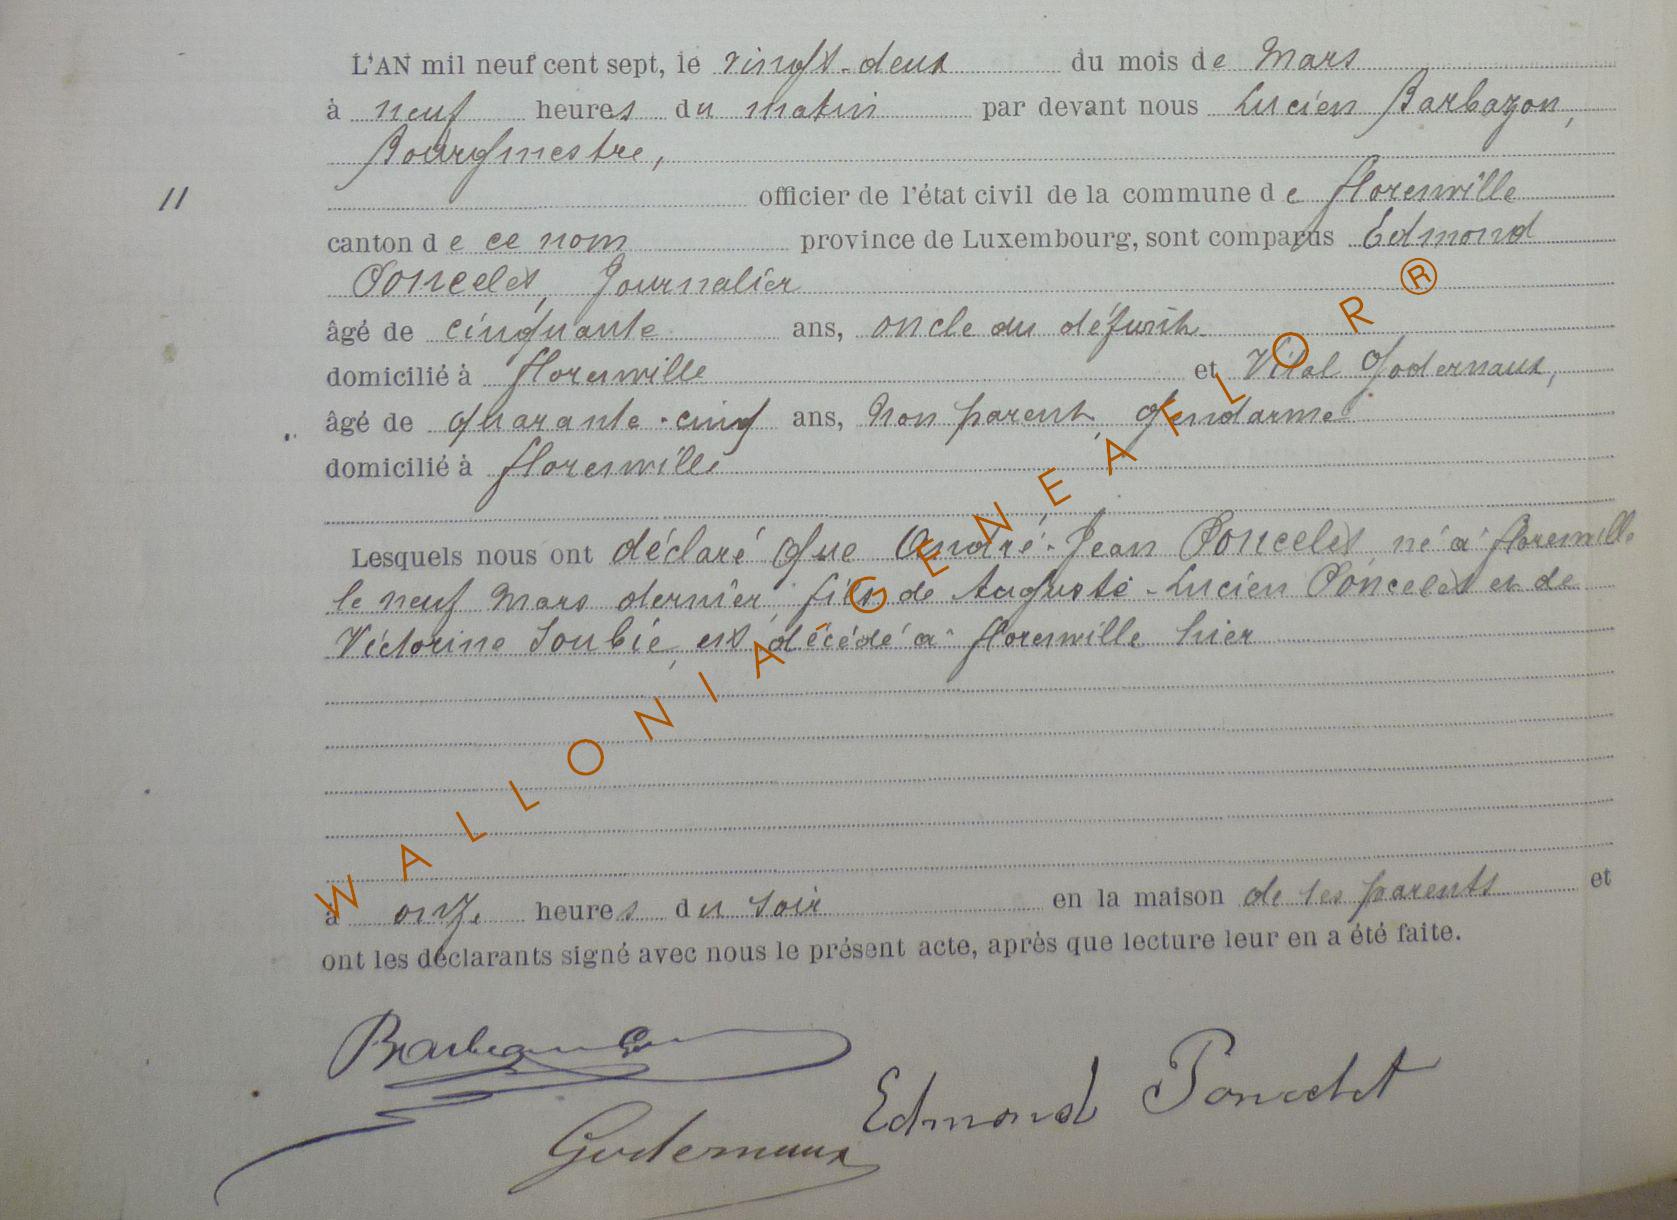 L'AN mil neuf cent sept, le vingt-deux du mois de Mars
à neuf heures du matin par devant nous Lucien Barbazon,
Bourgmestre,
11 officier de l'état civil de la commune de Florenville
canton de ce nom province de Luxembourg, sont comparus Edmond
Poncelet, Journalier
âgé de cinquante ans, oncle du défunt
domicilié à Florenville et Vital Godernaux,
âgé de quarante-cinq ans, non parent, Gendarme
domicilié à Florenville
Lesquels nous ont déclaré que André-Jean Poncelet, né à Florenville
le neuf Mars dernier, fils de Auguste-Lucien Poncelet et de
Victorine Soubie, est décédé à Florenville hier
à onze heures du soir en la maison de ses parents et
ont les déclarants signé avec nous le présent acte, après que lecture leur en a été faite.
Barbazon
Edmond Poncelet
Godernaux
WALLONIA GENEAFLOR®